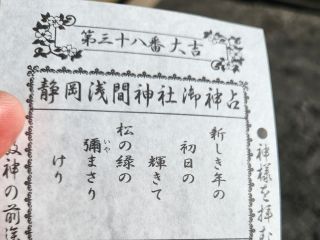 第三十八番 大吉
静岡浅間神社御神占
新しき年の
初日の
輝きて
松の緑の
彌まさり
いや
けり
神様を拝む
神の前途